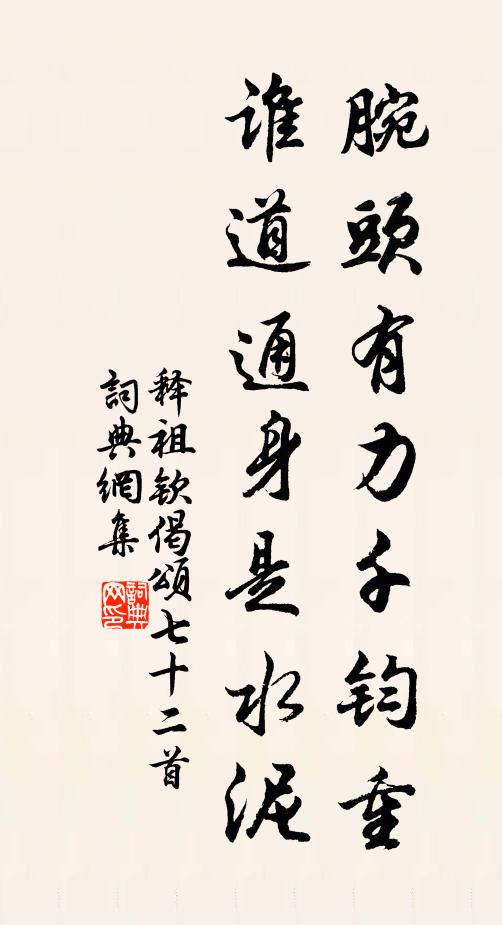 腕頭有力千鈞重
谁道通身是水泥
释祖欽偈頌七十二首
詞典網集
詞典網印